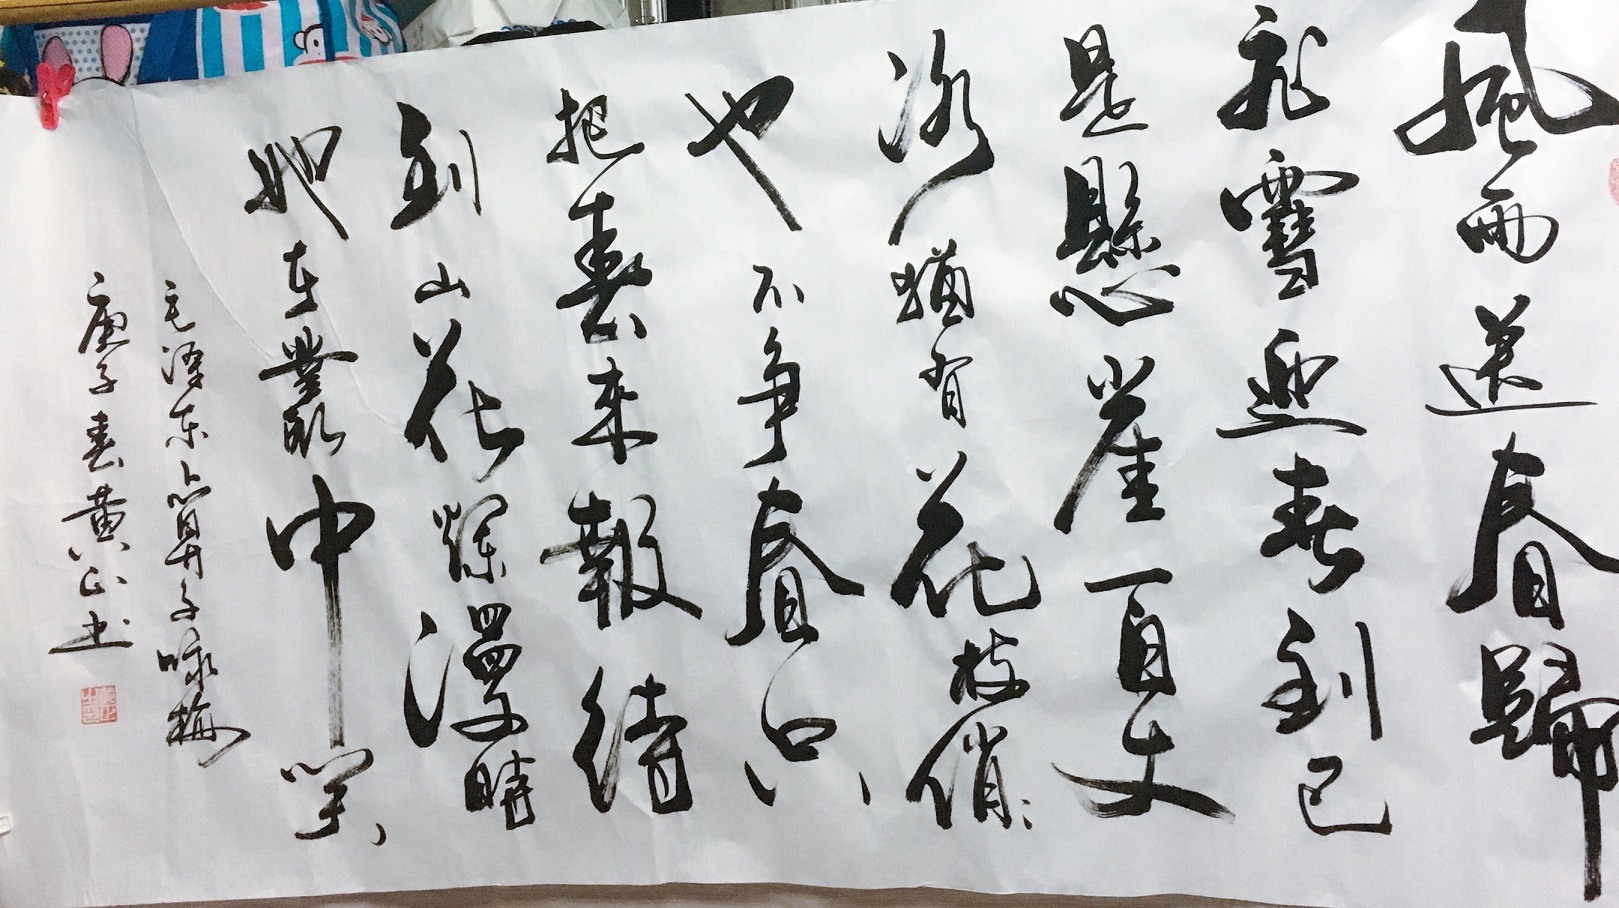 風雨送春歸
飛雪迎春到已
是懸崖百丈
冰猶有花枝俏々
也不争春只
把春來報待
到山花爛漫時
她在叢中笑
毛澤東卜算子咏梅
庚子春黄正书